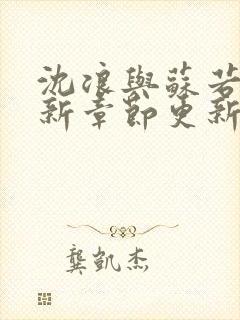 沈浪與蘇若
新章節更新
龔凱杰